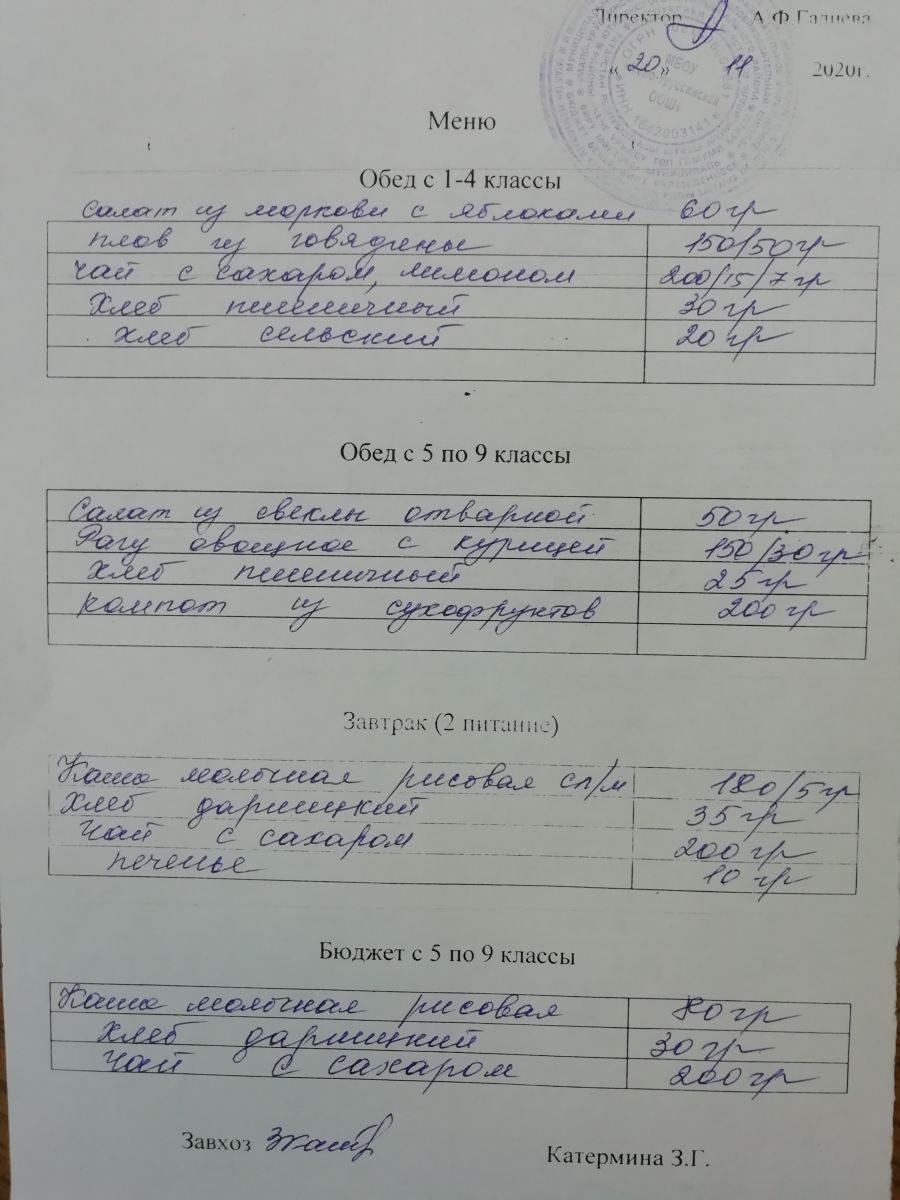 Директор А.Ф.Галиева
«20» 11 2020г.
МБОУ
ООШ»
ИНН 1642003141
Меню
Обед с 1-4 классы
Салат из моркови с яблоками 60гр
плов из говядены 150/50гр
чай с сахаром, лимоном 200/15/7гр
Хлеб пшеничный 30гр
хлеб сельский 20гр
Обед с 5 по 9 классы
Салат из свеклы отварной 50гр
Рагу овощное с курицей 150/30гр
хлеб пшеничный 25гр
компот из сухофруктов 200гр
Завтрак (2 питание)
Каша молочная рисовая сл/м 180/5гр
Хлеб дарницкий 35гр
Чай с сахаром 200гр
печенье 10гр
Бюджет с 5 по 9 классы
Каша молочная рисовая гр
Хлеб дарницкий 30гр
Чай с сахаром 200гр
Завхоз
Катермина З.Г.